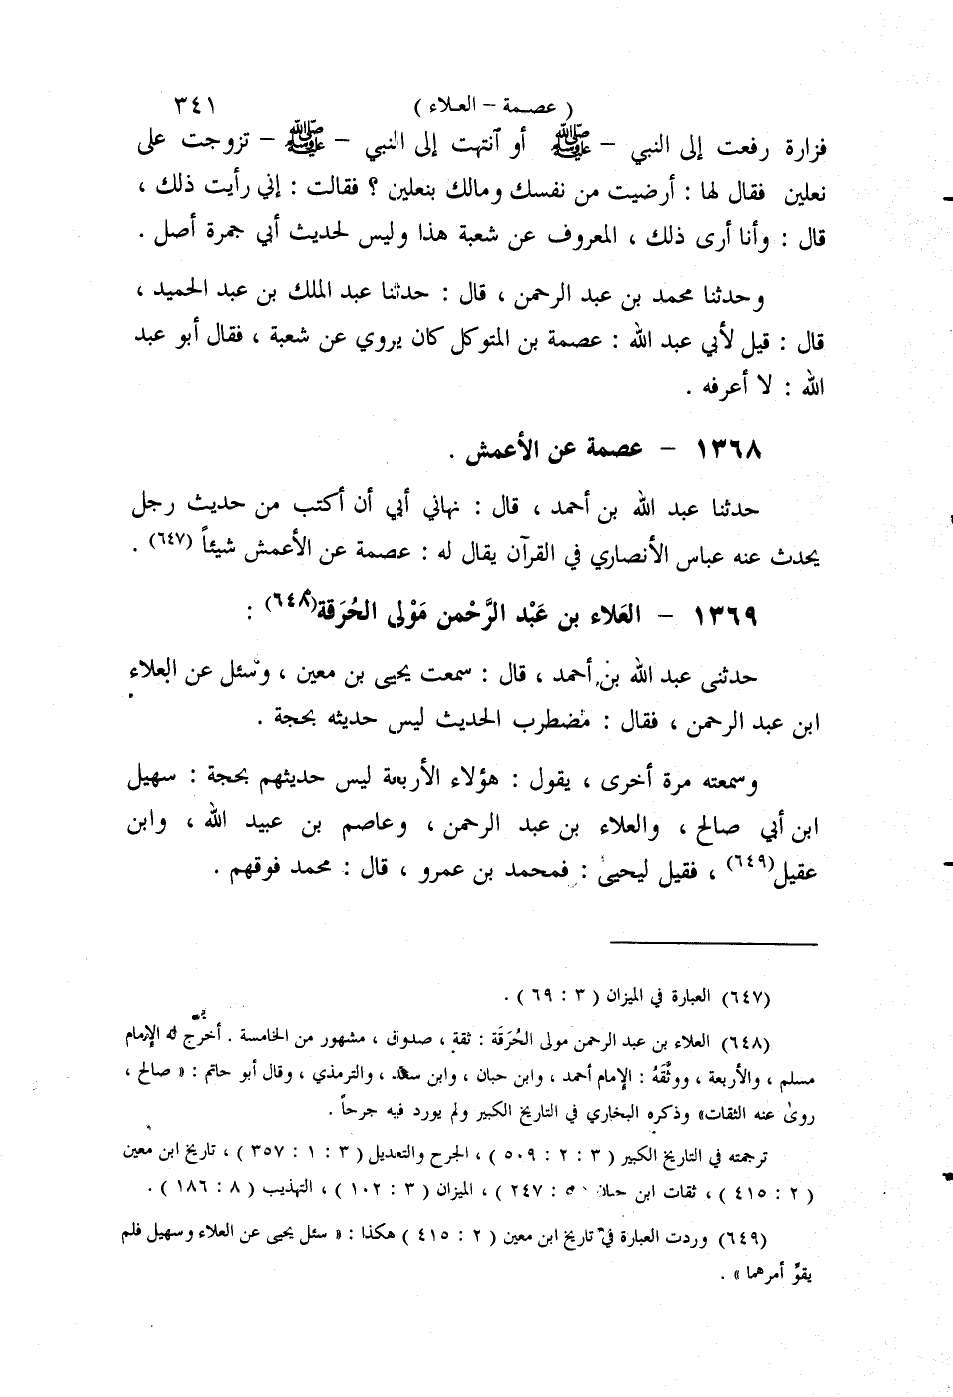 ( عصمة – العلاء )    ٣٤١
فزارة رفعت إلى النبي – ﷺ أو آنتهت إلى النبي – ﷺ – تزوجت على
نعلين فقال لها : أرضيت من نفسك ومالك بنعلين ؟ فقالت : إني رأيت ذلك ،
قال : وأنا أرى ذلك ، المعروف عن شعبة هذا وليس لحديث أبي جمرة أصل .
وحدثنا محمد بن عبد الرحمن ، قال : حدثنا عبد الملك بن عبد الحميد ،
قال : قيل لأبي عبد الله : عصمة بن المتوكل كان يروي عن شعبة ، فقال أبو عبد
الله : لا أعرفه .
١٣٦٨ – عصمة عن الأعمش .
حدثنا عبد الله بن أحمد ، قال : نهاني أبي أن أكتب من حديث رجل
يحدث عنه عباس الأنصاري في القرآن يقال له : عصمة عن الأعمش شيئاً (٦٤٧) .
١٣٦٩ – العَلاء بن عَبْد الرَّحْمن مَوْلى الحُرَقة(٦٤٨) :
حدثنى عبد الله بن أحمد ، قال : سمعت يحيى بن معين ، وسئل عن العلاء
ابن عبد الرحمن ، فقال : مضطرب الحديث ليس حديثه بحجة .
وسمعته مرة أخرى ، يقول : هؤلاء الأربعة ليس حديثهم بحجة : سهيل
ابن أبي صالح ، والعلاء بن عبد الرحمن ، وعاصم بن عبيد الله ، وابن
عقيل(٦٤٩) ، فقيل ليحيىٰ : فمحمد بن عمرو ، قال : محمد فوقهم .
(٦٤٧) العبارة في الميزان ( ٣ : ٦٩ ) .
(٦٤٨) العلاء بن عبد الرحمن مولى الحُرَقَة : ثقة ، صدوق ، مشهور من الخامسة . أخرج له الإمام
مسلم ، والأربعة ، ووثَّقَهُ : الإمام أحمد ، وابن حبان ، وابن سعد ، والترمذي ، وقال أبو حاتم : « صالح ،
روىٰ عنه الثقات» وذكره البخاري في التاريخ الكبير ولم يورد فيه جرحاً .
ترجمته في التاريخ الكبير ( ٣ : ٢ : ٥٠٩ ) ، الجرح والتعديل ( ٣ : ١ : ٣٥٧ ) ، تاريخ ابن معين
( ٢ : ٤١٥ ) ، ثقات ابن حبان ( ٥ : ٢٤٧ ) ، الميزان ( ٣ : ١٠٢ ) ، التهذيب ( ٨ : ١٨٦ ) .
(٦٤٩) وردت العبارة في تاريخ ابن معين ( ٢ : ٤١٥ ) هكذا : « سئل يحيى عن العلاء وسهيل فلم
يقوِّ أمرهما » .